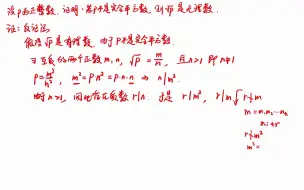 设p为正整数, 证明: 若p不是完全平方数, 则√p是无理数.
证: 反证法.
假设√p是有理数, 由于p不是完全平方数,
∃互质的两个正整数m, n, √p = m/n, 且n>1 即n≠1
p = m²/n², m² = p n² = p·n·n ⇒ n | m².
由于n>1, 因此存在质数r|n. 于是 r | m², r | m
r∤m
m = m₁m₂…
r∤m²
m² =